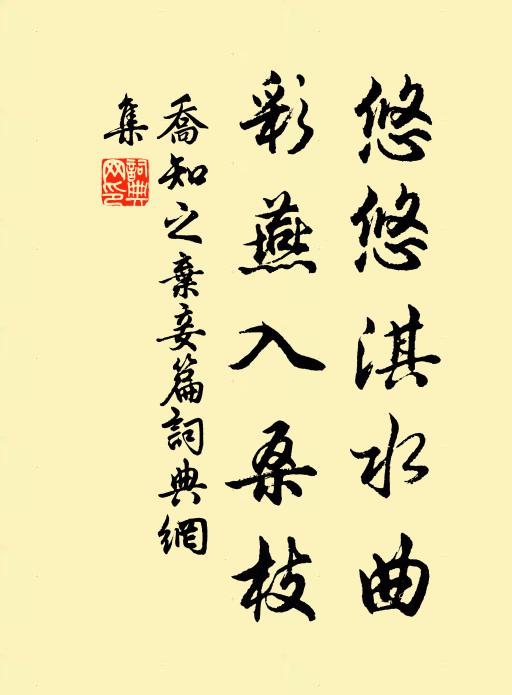 悠悠淇水曲
彩燕入桑枝
喬知之棄妾篇詞典網
集
詞典
网印